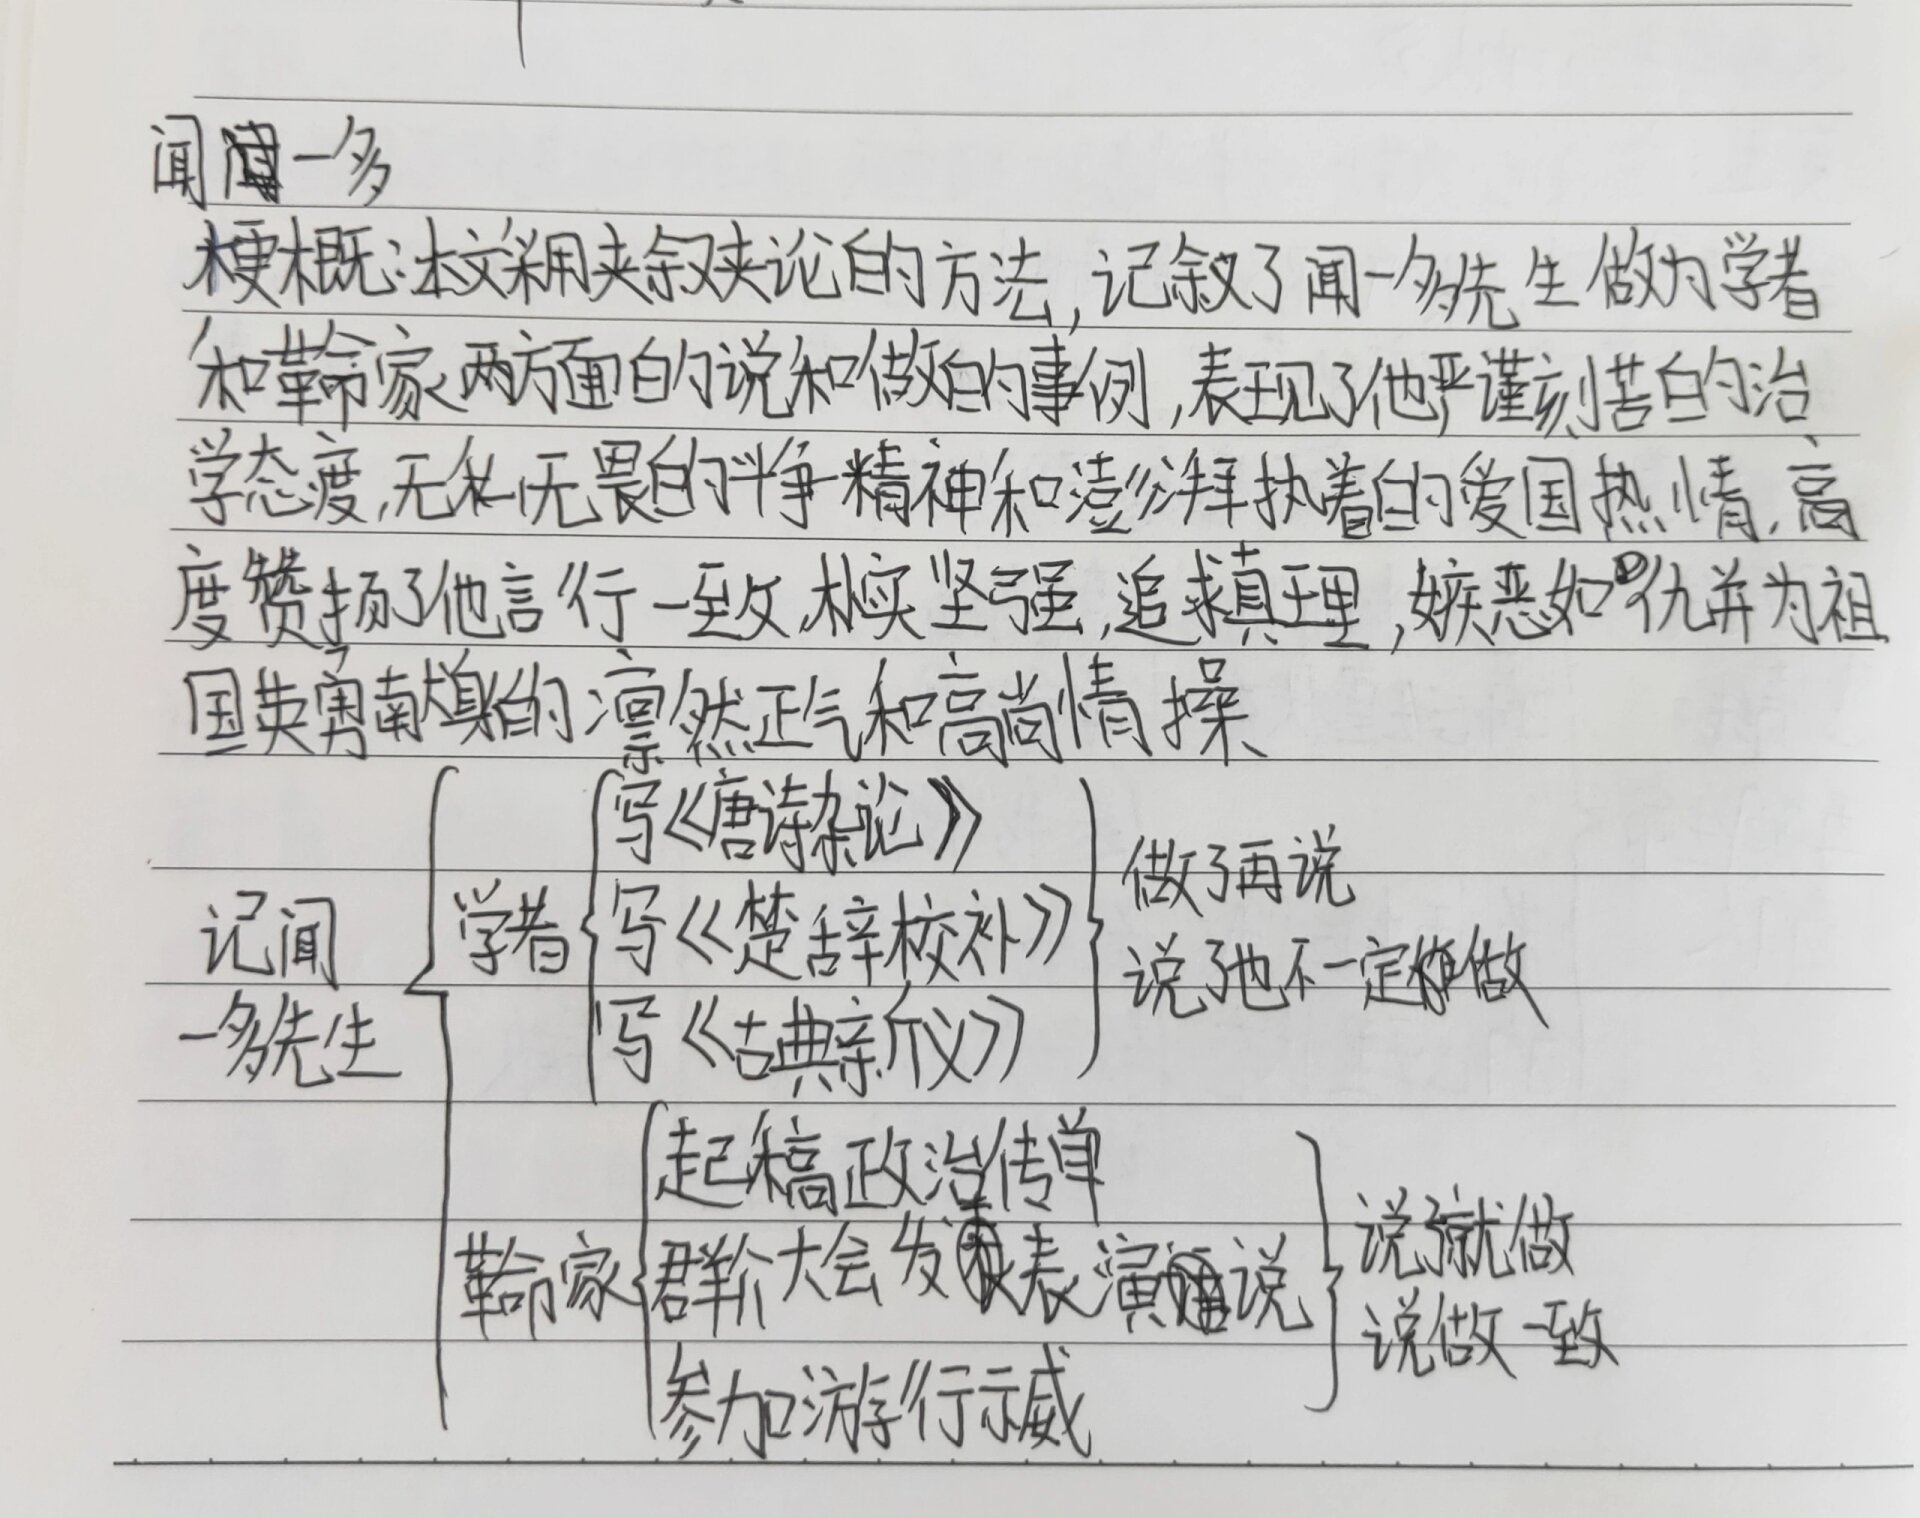 闻一多
梗概:本文采用夹叙夹论的方法,记叙了闻一多先生做为学者
和革命家两方面的说和做的事例,表现了他严谨刻苦的治
学态度,无私无畏的斗争精神和澎湃执着的爱国热情,高
度赞扬了他言行一致,朴实坚强,追求真理,嫉恶如仇并为祖
国英勇献身的凛然正气和高尚情操
记闻
一多先生
学者
写《唐诗杂论》
写《楚辞校补》
写《古典新义》
做了再说
说了他不一定做
革命家
起稿政治传单
群众大会发表演说
参加游行示威
说了就做
说做一致